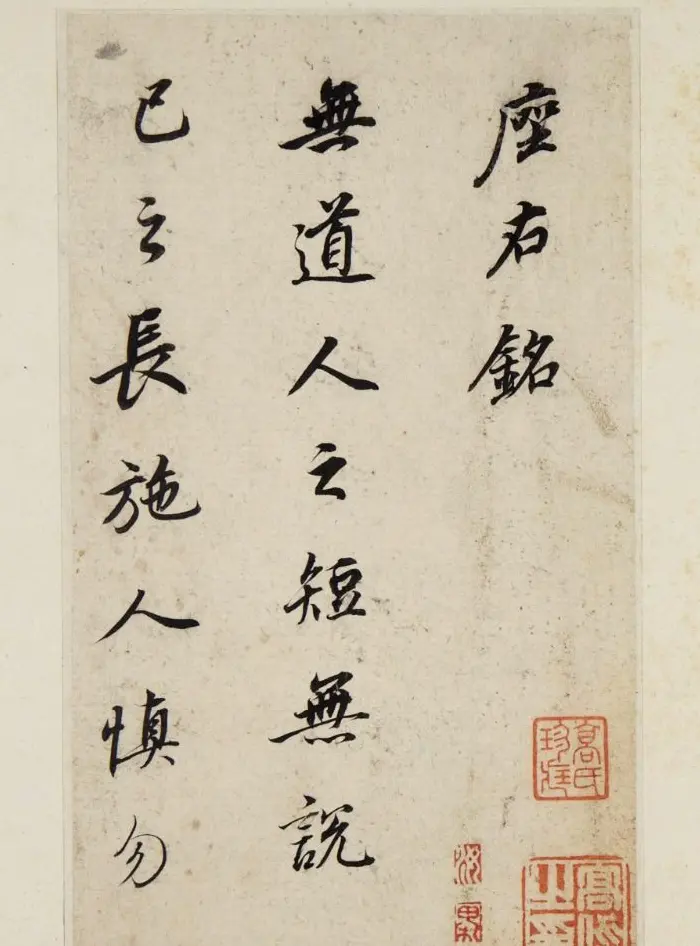 座右銘
無道人之短無說
己之長施人慎勿